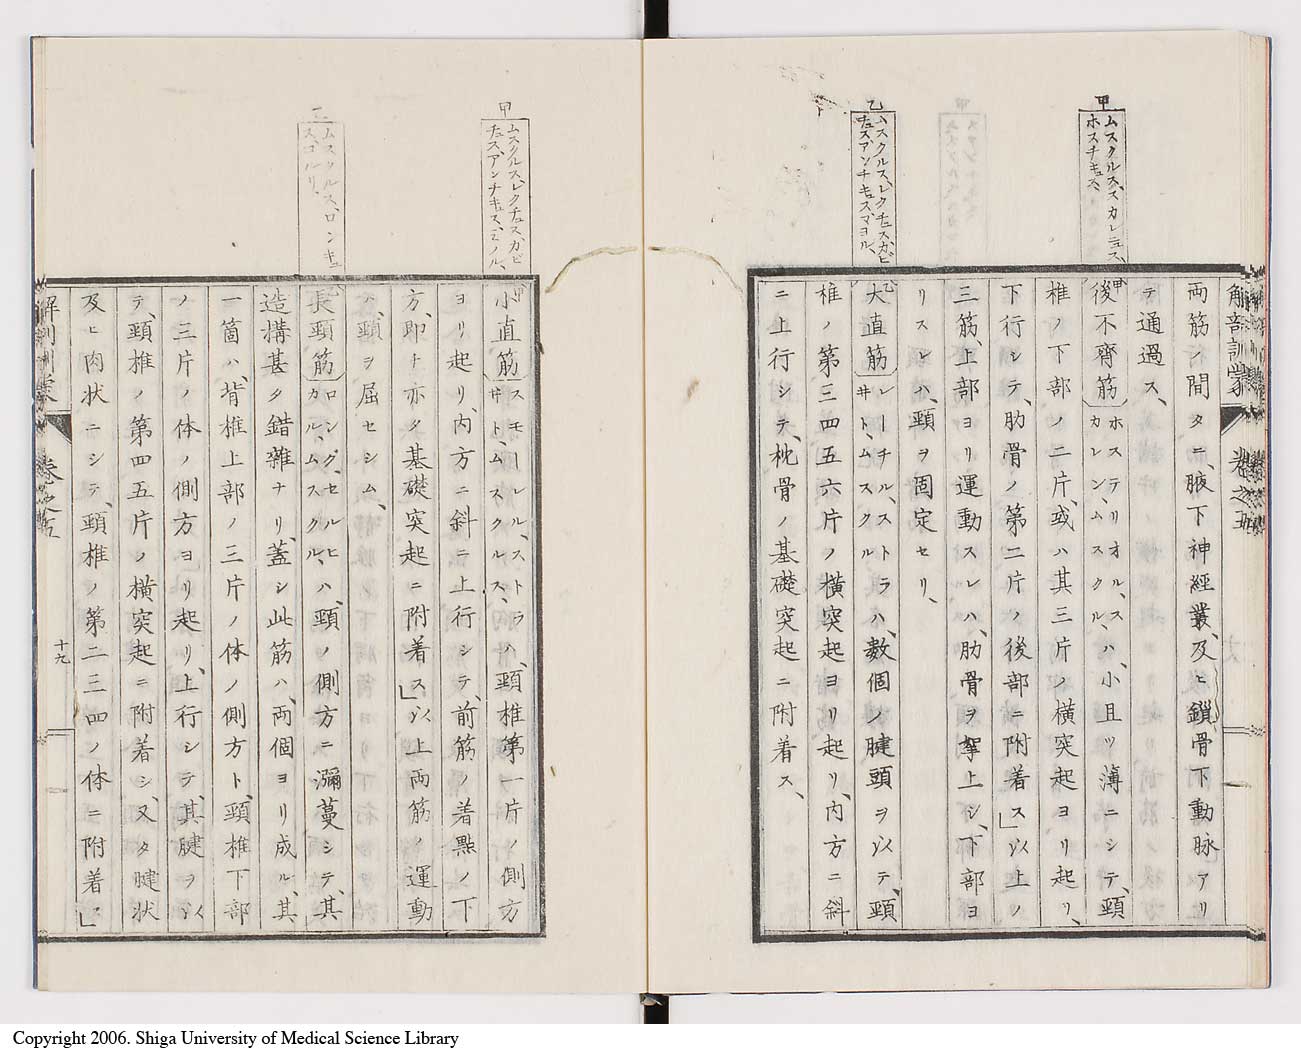 甲
ムスクルス、スカレニュス、
ホスチキュス、
乙
ムスクルス、レクチュスカピ
チュス、アンチキュス、マヨル、
解剖訓蒙
卷之五
両筋ノ間タニ、腋下神経叢、及ヒ鎖骨下動脉アリ
テ通過ス、
甲後不齊筋ホステリオル、スカレン、ムスクルハ、小且ツ薄ニシテ、頸
椎ノ下部ノ二片、或ハ其三片ノ横突起ヨリ起リ、
下行シテ、肋骨ノ第二片ノ後部ニ附着ス」以上ノ
三筋、上部ヨリ運動スレハ、肋骨ヲ挈上シ、下部ヨ
リスレハ、頸ヲ固定セリ、
乙大直筋レーチル、ストライト、ムスクルハ、數個ノ腱頭ヲ以テ、頸
椎ノ第三四五六片ノ横突起ヨリ起リ、内方ニ斜
ニ上行シテ、枕骨ノ基礎突起ニ附着ス、
甲
ムスクルス、レクチュスカピ
チュス、アンチキュス、ミノル、
乙
ムスクルス、ロンギュ
ス、コルリ、
甲小直筋スモーレル、ストライト、ムスクルスハ、頸椎第一片ノ側方
ヨリ起リ、内方ニ斜ニ上行シテ、前筋ノ着點ノ下
方、即ナ亦タ基礎突起ニ附着ス」以上両筋ノ運動
ハ、頸ヲ屈セシム、
乙長頸筋ロング、セルヒカル、ムスクルハ、頸ノ側方ニ瀰蔓シテ、其
造構甚タ錯雜ナリ、蓋シ此筋ハ、両個ヨリ成ル、其
一箇ハ、背椎上部ノ三片ノ体ノ側方ト、頸椎下部
ノ三片ノ体ノ側方ヨリ起リ、上行シテ、其腱ヲ以
テ、頸椎ノ第四五片ノ横突起ニ附着シ、又タ腱状
及ヒ肉状ニシテ、頸椎ノ第二三四ノ体ニ附着ス」
十九
解剖訓蒙
卷之五
Copyright 2006. Shiga University of Medical Science Library